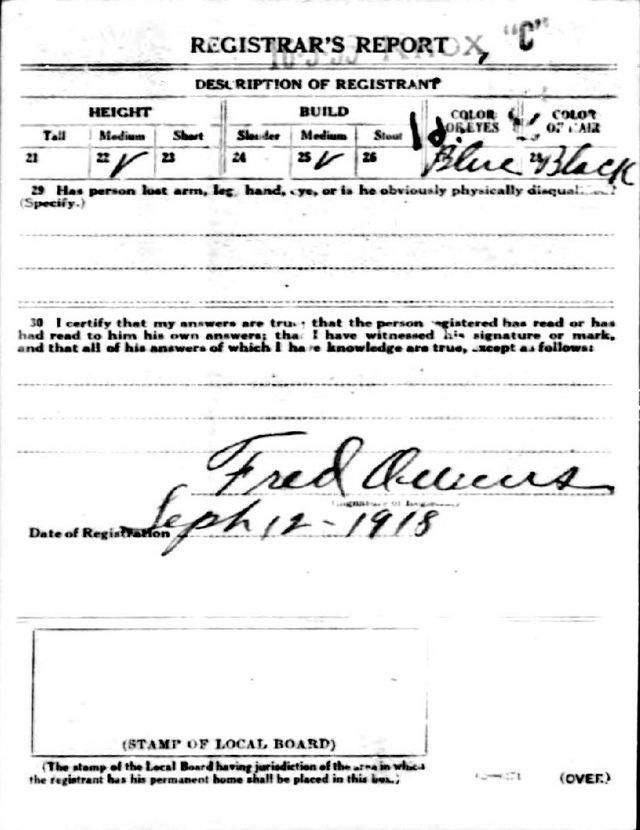 REGISTRAR'S REPORT
KNOX, "C"
DESCRIPTION OF REGISTRANT
HEIGHT BUILD COLOR OF EYES COLOR OF HAIR
Tall Medium Short Slender Medium Stout
21 22 ✓ 23 24 25 ✓ 26 Blue 28 Black
29 Has person lost arm, leg, hand, eye, or is he obviously physically disqualified?
(Specify.)
30 I certify that my answers are true; that the person registered has read or has
had read to him his own answers; that I have witnessed his signature or mark,
and that all of his answers of which I have knowledge are true, except as follows:
Fred Owens
(Signature of Registrar)
Date of Registration Sept 12 - 1918
(STAMP OF LOCAL BOARD)
(The stamp of the Local Board having jurisdiction of the area in which
the registrant has his permanent home shall be placed in this box.)
(OVER)